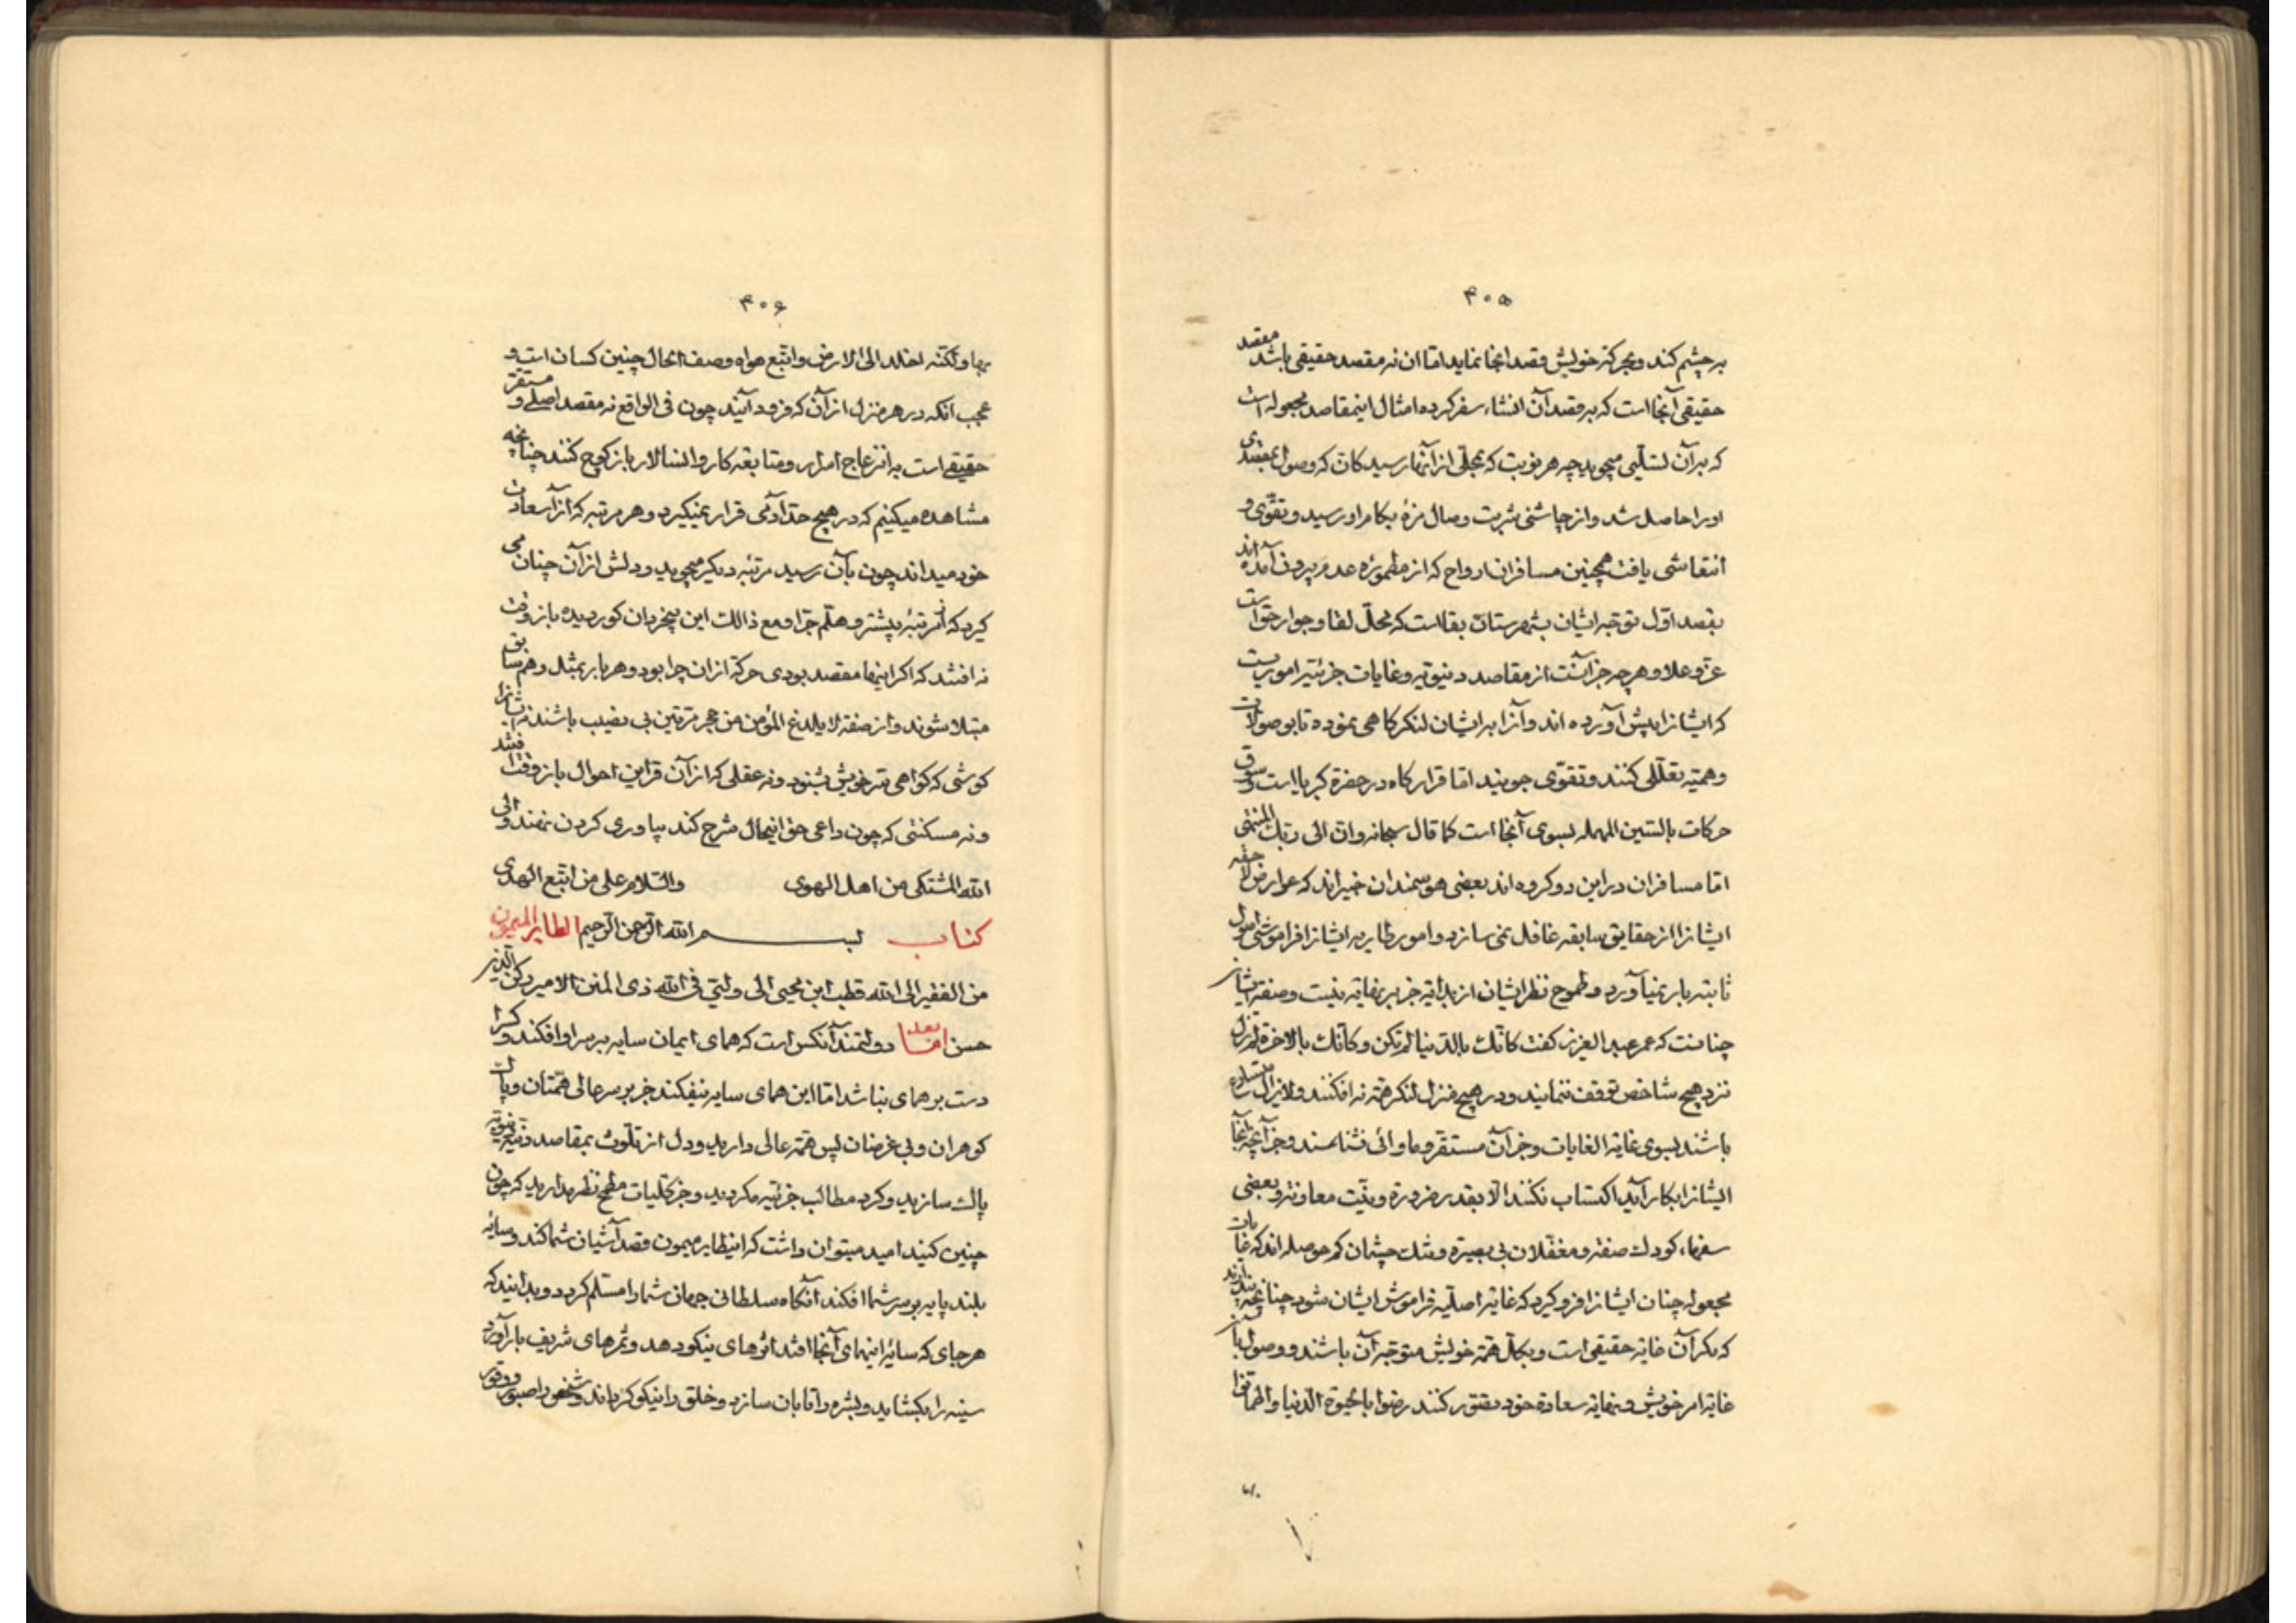 ۴۰۵
بر چشم کند و بحرکة خویش قصد انجا نماید اما ان نه مقصد حقیقی باشد مقصد
حقیقی آنجا است که بر قصد آن انشاء سفر کرده امثال اینمقاصد مجعوله است
که بر آن تسلّی میجوید چه هر نوبت که بمحلّی از آنها رسید کانّ که وصول بمقصدی
او را حاصل شد و از چاشنی شربت وصال مزهٔ بکام او رسید و تقوّی و
انتقاشی یافت همچنین مسافران ارواح که از مطمورهٔ عدم بیرون آمده اند
بقصد اوّل توجّه ایشان بشهرستان بقا است که محلّ لقا و جوار حق است
عزّ و علا و هر چه جز آنست از مقاصد دنیویّه و غایات جزئیّه اموریست
که ایشانرا پیش آورده اند و آنرا بر ایشان لنکرکاهی نموده تا بوصولات
وهمیّه تعلّلی کنند و تقوّی جویند اما قرارکاه در حضرة کبریا است و سوق
حرکات بالسّین المهمله بسوی آنجا است کما قال سبحانه و انّ الی ربّک المنتهی
امّا مسافران در این دو کروه اند بعضی هوشمندان خبیراند که عوارض لاحقه
ایشانرا از حقایق سابقه غافل نمی سازد و امور طاریه ایشانرا فراموشی اصول
ثابته بار نمیآورد و طموح نظر ایشان از بدایة جز بر نهایة نیست و صفة ایشان
چنانست که عمر عبد العزیز کفت کانّک بالدّنیا لم تکن و کانّک بالاخرة لم تزل
نزد هیچ شاخص توقف ننمایند و در هیچ منزل لنکر همّة نه افکنند و لا یزال ستاره
باشند بسوی غایة الغایات و جز آن مستقرّ و ماوائی نشناسند و جز آنچه آنجا
ایشانرا بکار آید اکتساب نکنند الّا بقدر ضرورة و بنیّت معاونة و بعضی
سفهاء کودک صفة و مغفّلان بی بصیرة و تنک چشمان کم حوصله اند که غایات
مجعوله چنان ایشانرا فرو کیرد که غایة اصلیّه فراموش ایشان شود چنانچه پندارند
که مکر آن غایة حقیقی است و بکلّ همّة خویش متوجّه آن باشند و وصول بآنرا
غایة امر خویش و نهایة سعادة خود تصوّر کنند رضوا بالحیوة الدّنیا و اطمانّوا
۴۰۶
بها ولکنّه اخلد الی الارض و اتّبع هواه وصف الحال چنین کسان است و
عجب انکه در هر منزل از آن که فرود آیند چون فی الواقع نه مقصد اصلی و مستقرّ
حقیقی است به انزعاج امرا و متابعة کاروانسالار باز کوچ کنند چنانچه
مشاهده میکنیم که در هیچ حدّ آدمی قرار نمیکیرد و هر مرتبه که از آن سعادت
خود میداند چون بآن رسید مرتبهٔ دیکر میجوید و دلش از آن چنان می
کیرد که از مرتبهٔ پیشتر و هلّم جرّا و مع ذالک این بیخردان کور دیده باز وقت
نه افتند که اکر اینها مقصد بودی حرکة از ان چرا بود و هر بار بمثل وهم سابق
مبتلا شوند و از صفة لا یلدغ المؤمن من جحر مرّتین بی نصیب باشند نه ایشانرا
کوشی که کواهی سرّ خویش بشنود و نه عقلی که از آن قراین احوال باز وقت افتند
و نه مسکنتی که چون داعی حق اینحال شرح کند بیاوری کردن نهند و الی
اللّه المشتکی من اهل الهوی والسّلام علی من اتّبع الهدی
کتاب بسم اللّه الرّحمن الرّحیم الطایر المیمون
من الفقیر الی اللّه قطب ابن محیی الی ولیّی فی اللّه ذی المنن الامیر رکن الدّین
حسن اما بعد دولتمند آنکس است که همای ایمان سایه بر سر او افکند و کرا
دست بر همای نباشد اما این همای سایه نیفکند جز بر سر عالی همّتان و پاک
کوهران و بی غرضان پس همّة عالی دارید و دل از تلوّث بمقاصد دنیّه دنیویّه
پاک سازید و کرد مطالب جزئیّه مکردید و جز کلّیات مطمح نظر مدارید که چون
چنین کنید امید میتوان داشت که اینطایر میمون قصد آشیان شما کند و سایهٔ
بلند پایه بر سر شما افکند آنکاه سلطانی جهان شما را مسلّم کردد و بدانید که
هر جای که سایهٔ اینهمای آنجا افتد اثرهای نیکو دهد و ثمرهای شریف بار آورد
سینه را بکشاید و بشره را تابان سازد و خلق را نیکو کرداند و شخص را صبور و وقور